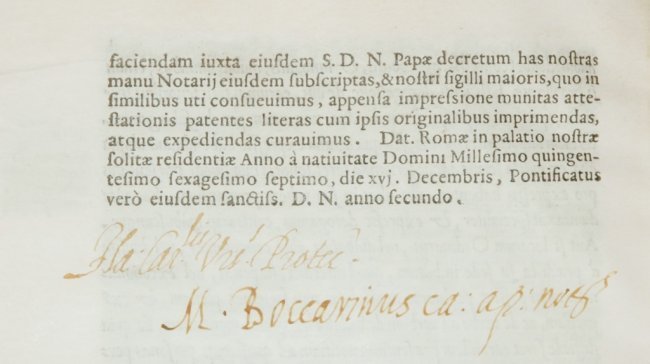 faciendam iuxta eiuſdem S. D. N. Papæ decretum has noſtras
manu Notarij eiuſdem ſubſcriptas,&noſtri ſigilli maioris,quo in
ſimilibus uti conſueuimus, appenſa impreſsione munitas atte-
ſtationis patentes literas cum ipſis originalibus imprimendas,
atque expediendas curauimus. Dat. Romæ in palatio noſtræ
ſolitæ reſidentiæ Anno à natiuitate Domini Milleſimo quingen-
teſimo ſexageſimo ſeptimo, die xvj. Decembris, Pontificatus
verò eiuſdem ſanctiſs. D. N. anno ſecundo.
Car: Protec
M. Boccarinus ca: ap: not